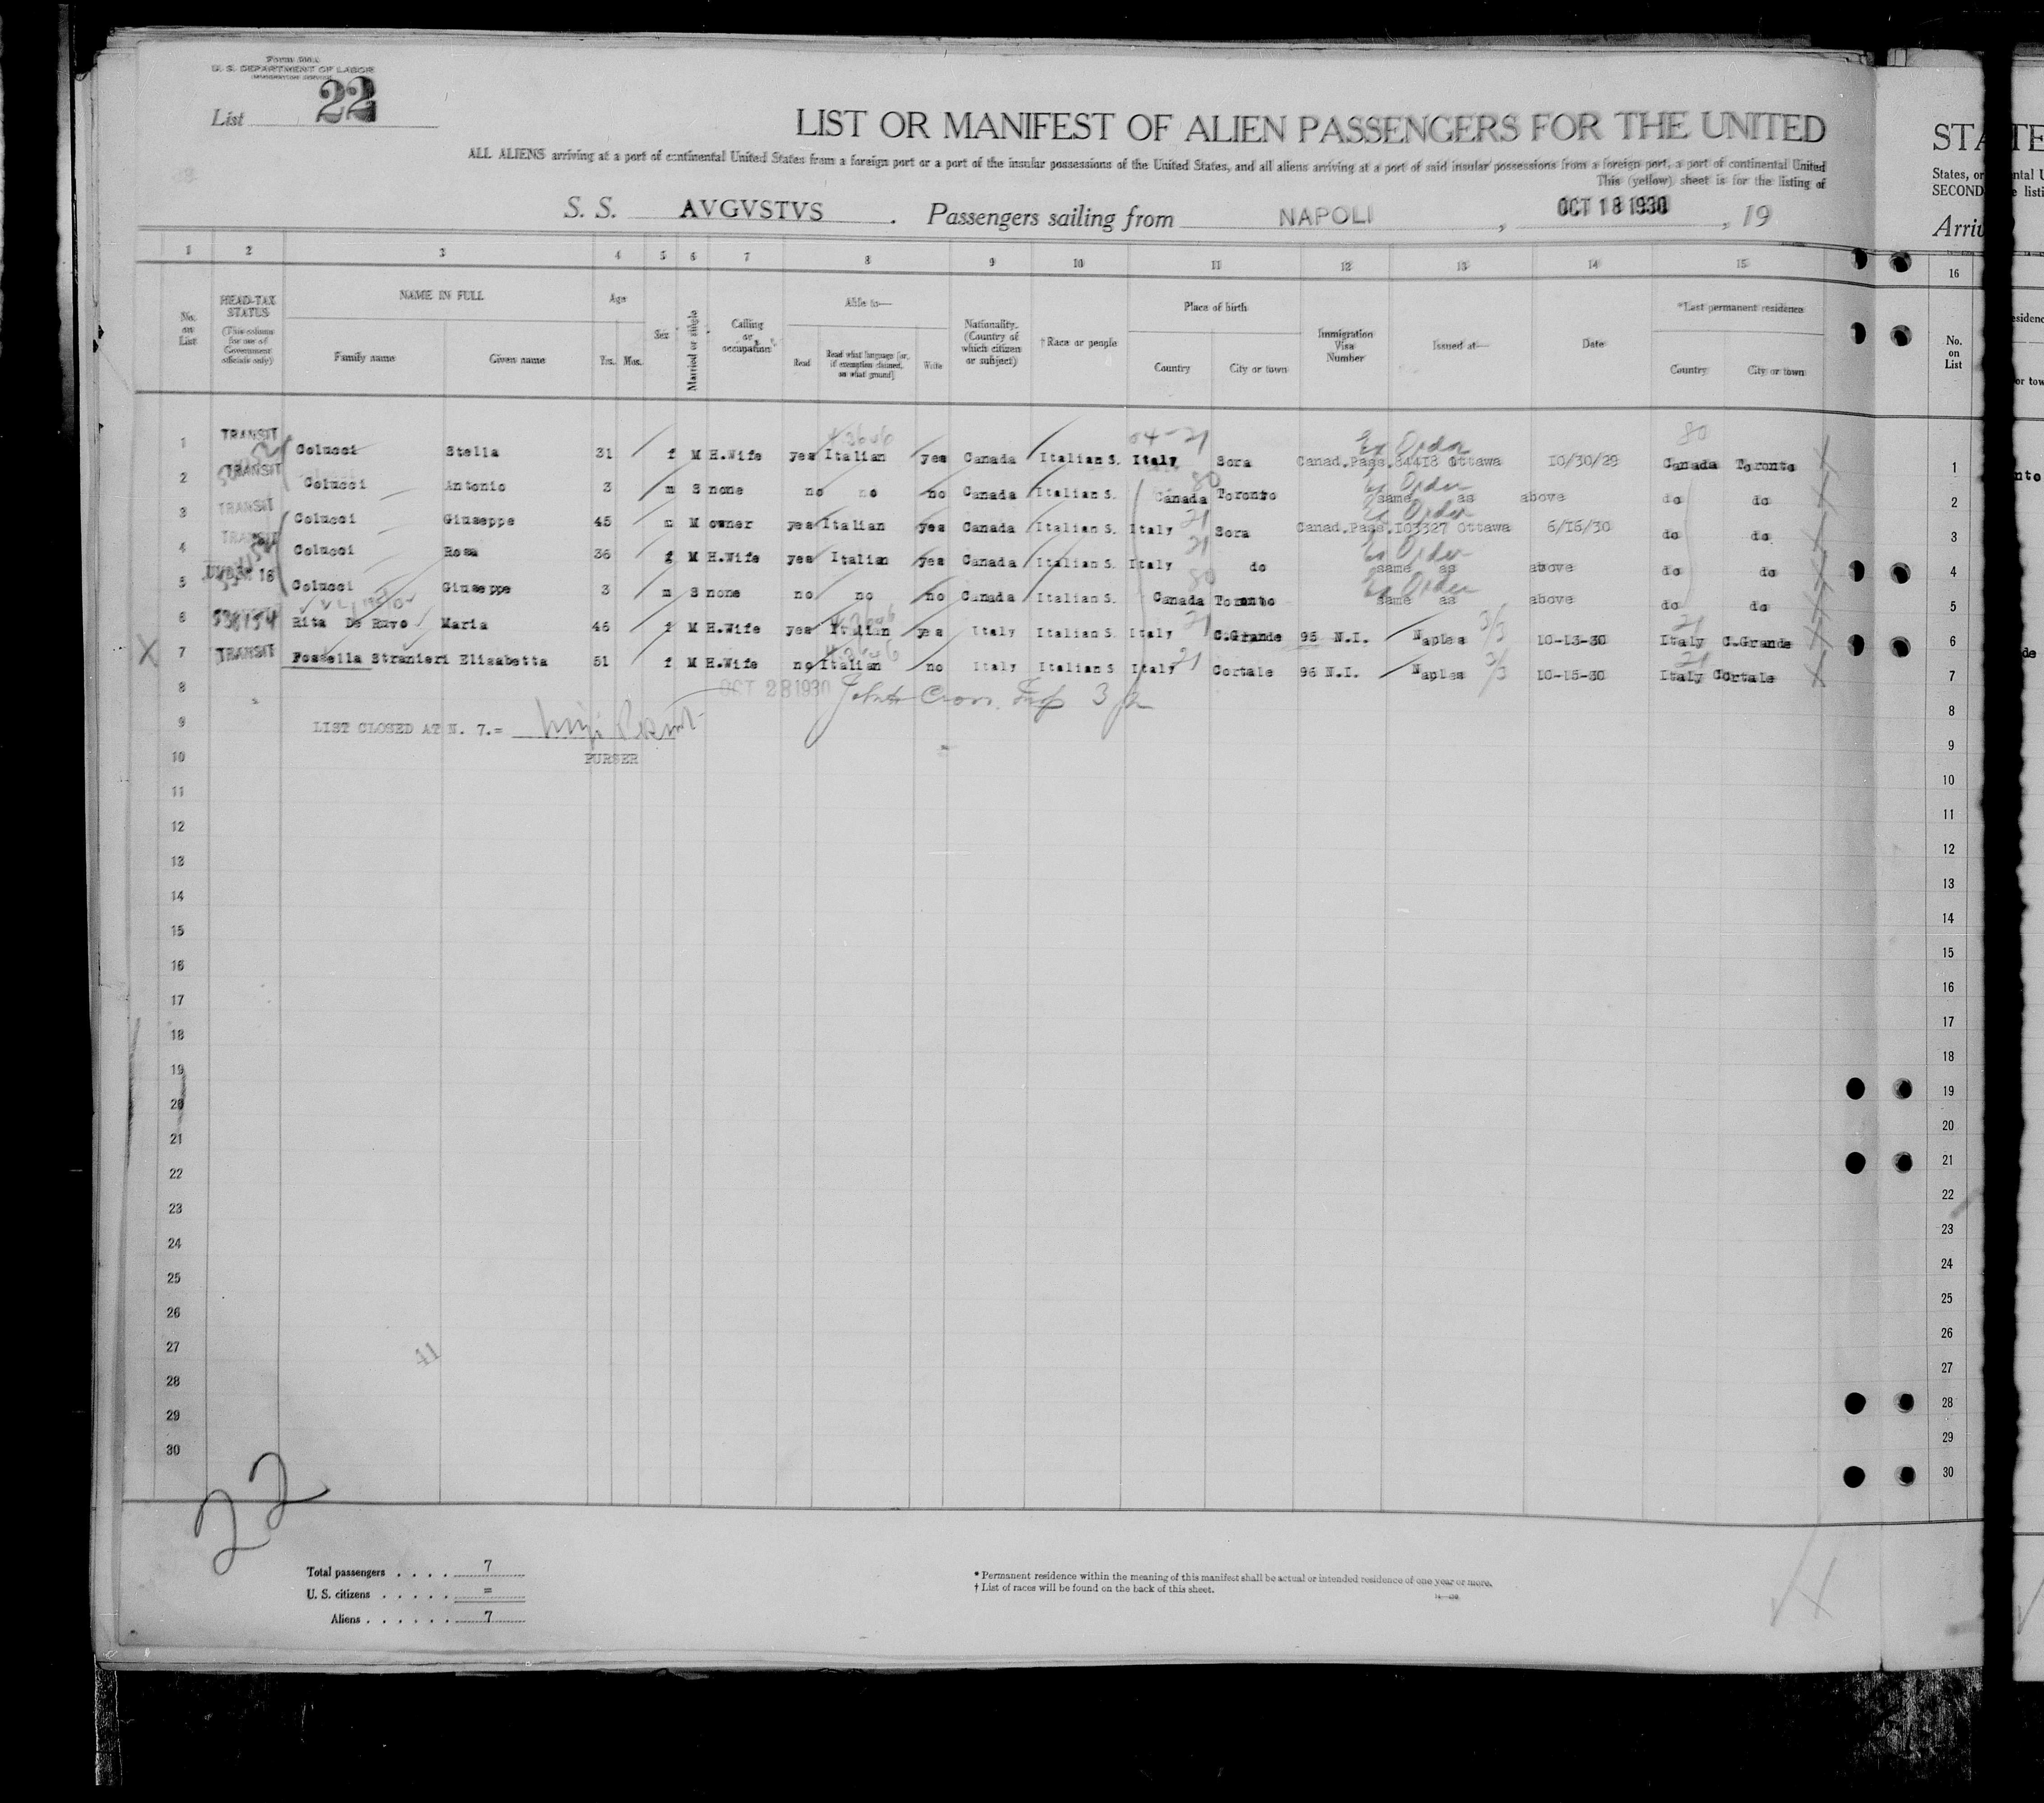 Form 500 A
U. S. DEPARTMENT OF LABOR
IMMIGRATION SERVICE
List 22
LIST OR MANIFEST OF ALIEN PASSENGERS FOR THE UNITED
ALL ALIENS arriving at a port of continental United States from a foreign port or a port of the insular possessions of the United States, and all aliens arriving at a port of said insular possessions from a foreign port, a port of continental United
This (yellow) sheet is for the listing of
S. S. AVGVSTVS . Passengers sailing from NAPOLI , OCT 18 1930 , 19
1 2 3 4 5 6 7 8 9 10 11 12 13 14 15
No. on List
HEAD-TAX STATUS (This column for use of Government officials only)
NAME IN FULL
Family name Given name
Age
Yrs. Mos.
Sex
Married or single
Calling or occupation
Able to—
Read Read what language [or, if exemption claimed, on what ground] Write
Nationality. (Country of which citizen or subject)
†Race or people
Place of birth
Country City or town
Immigration Visa Number
Issued at—
Date
*Last permanent residence
Country City or town
1 TRANSIT Colucci Stella 31 f M H.Wife yes Italian yes Canada Italian S. Italy Sora Canad.Pass.84418 Ottawa 10/30/29 Canada Toronto
2 TRANSIT Colucci Antonio 3 m S none no no no Canada Italian S. Canada Toronto same as above do do
3 TRANSIT Colucci Giuseppe 45 m M owner yes Italian yes Canada Italian S. Italy Sora Canad.Pass.103327 Ottawa 6/16/30 do do
4 TRANSIT Colucci Rosa 36 f M H.Wife yes Italian yes Canada Italian S. Italy do same as above do do
5 Colucci Giuseppe 3 m S none no no no Canada Italian S. Canada Toronto same as above do do
6 Rita De Ruvo Maria 46 f M H.Wife yes Italian yes Italy Italian S. Italy C.Grande 95 N.I. Naples 10-13-30 Italy C.Grande
7 TRANSIT Fossella Stranieri Elisabetta 51 f M H.Wife no Italian no Italy Italian S Italy Cortale 96 N.I. Naples 10-15-30 Italy Cortale
8 OCT 28 1930
9 LIST CLOSED AT N. 7.=
10 PURSER
11
12
13
14
15
16
17
18
19
20
21
22
23
24
25
26
27
28
29
30
41
22
Total passengers . . . . 7
U. S. citizens . . . . . =
Aliens . . . . . . 7
* Permanent residence within the meaning of this manifest shall be actual or intended residence of one year or more.
† List of races will be found on the back of this sheet.
STATE
States, or
SECOND
Arriv
16
No. on List
1
2
3
4
5
6
7
8
9
10
11
12
13
14
15
16
17
18
19
20
21
22
23
24
25
26
27
28
29
30